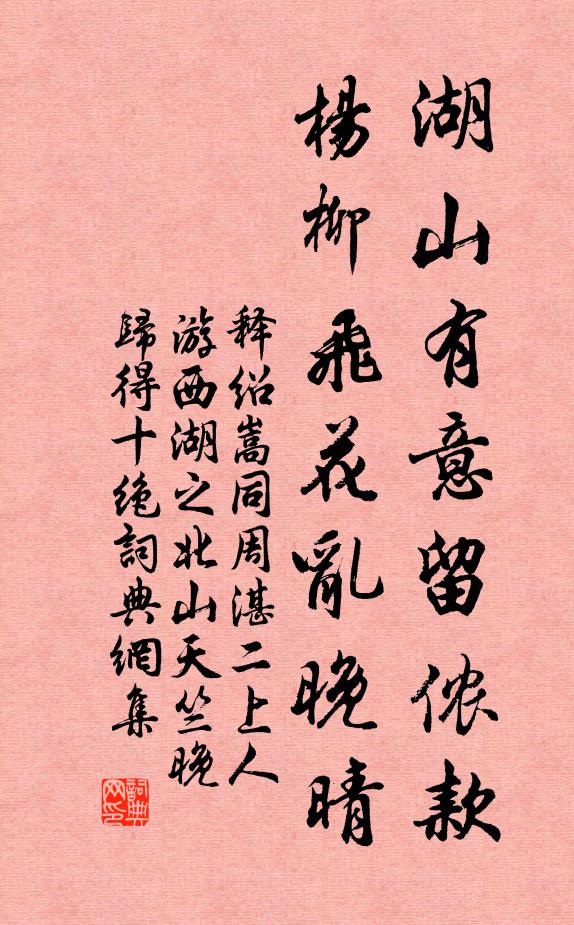 湖山有意留侬款
楊柳飛花亂晚晴
释绍嵩同周湛二上人
游西湖之北山天竺晚
歸得十绝詞典網集
詞典网印